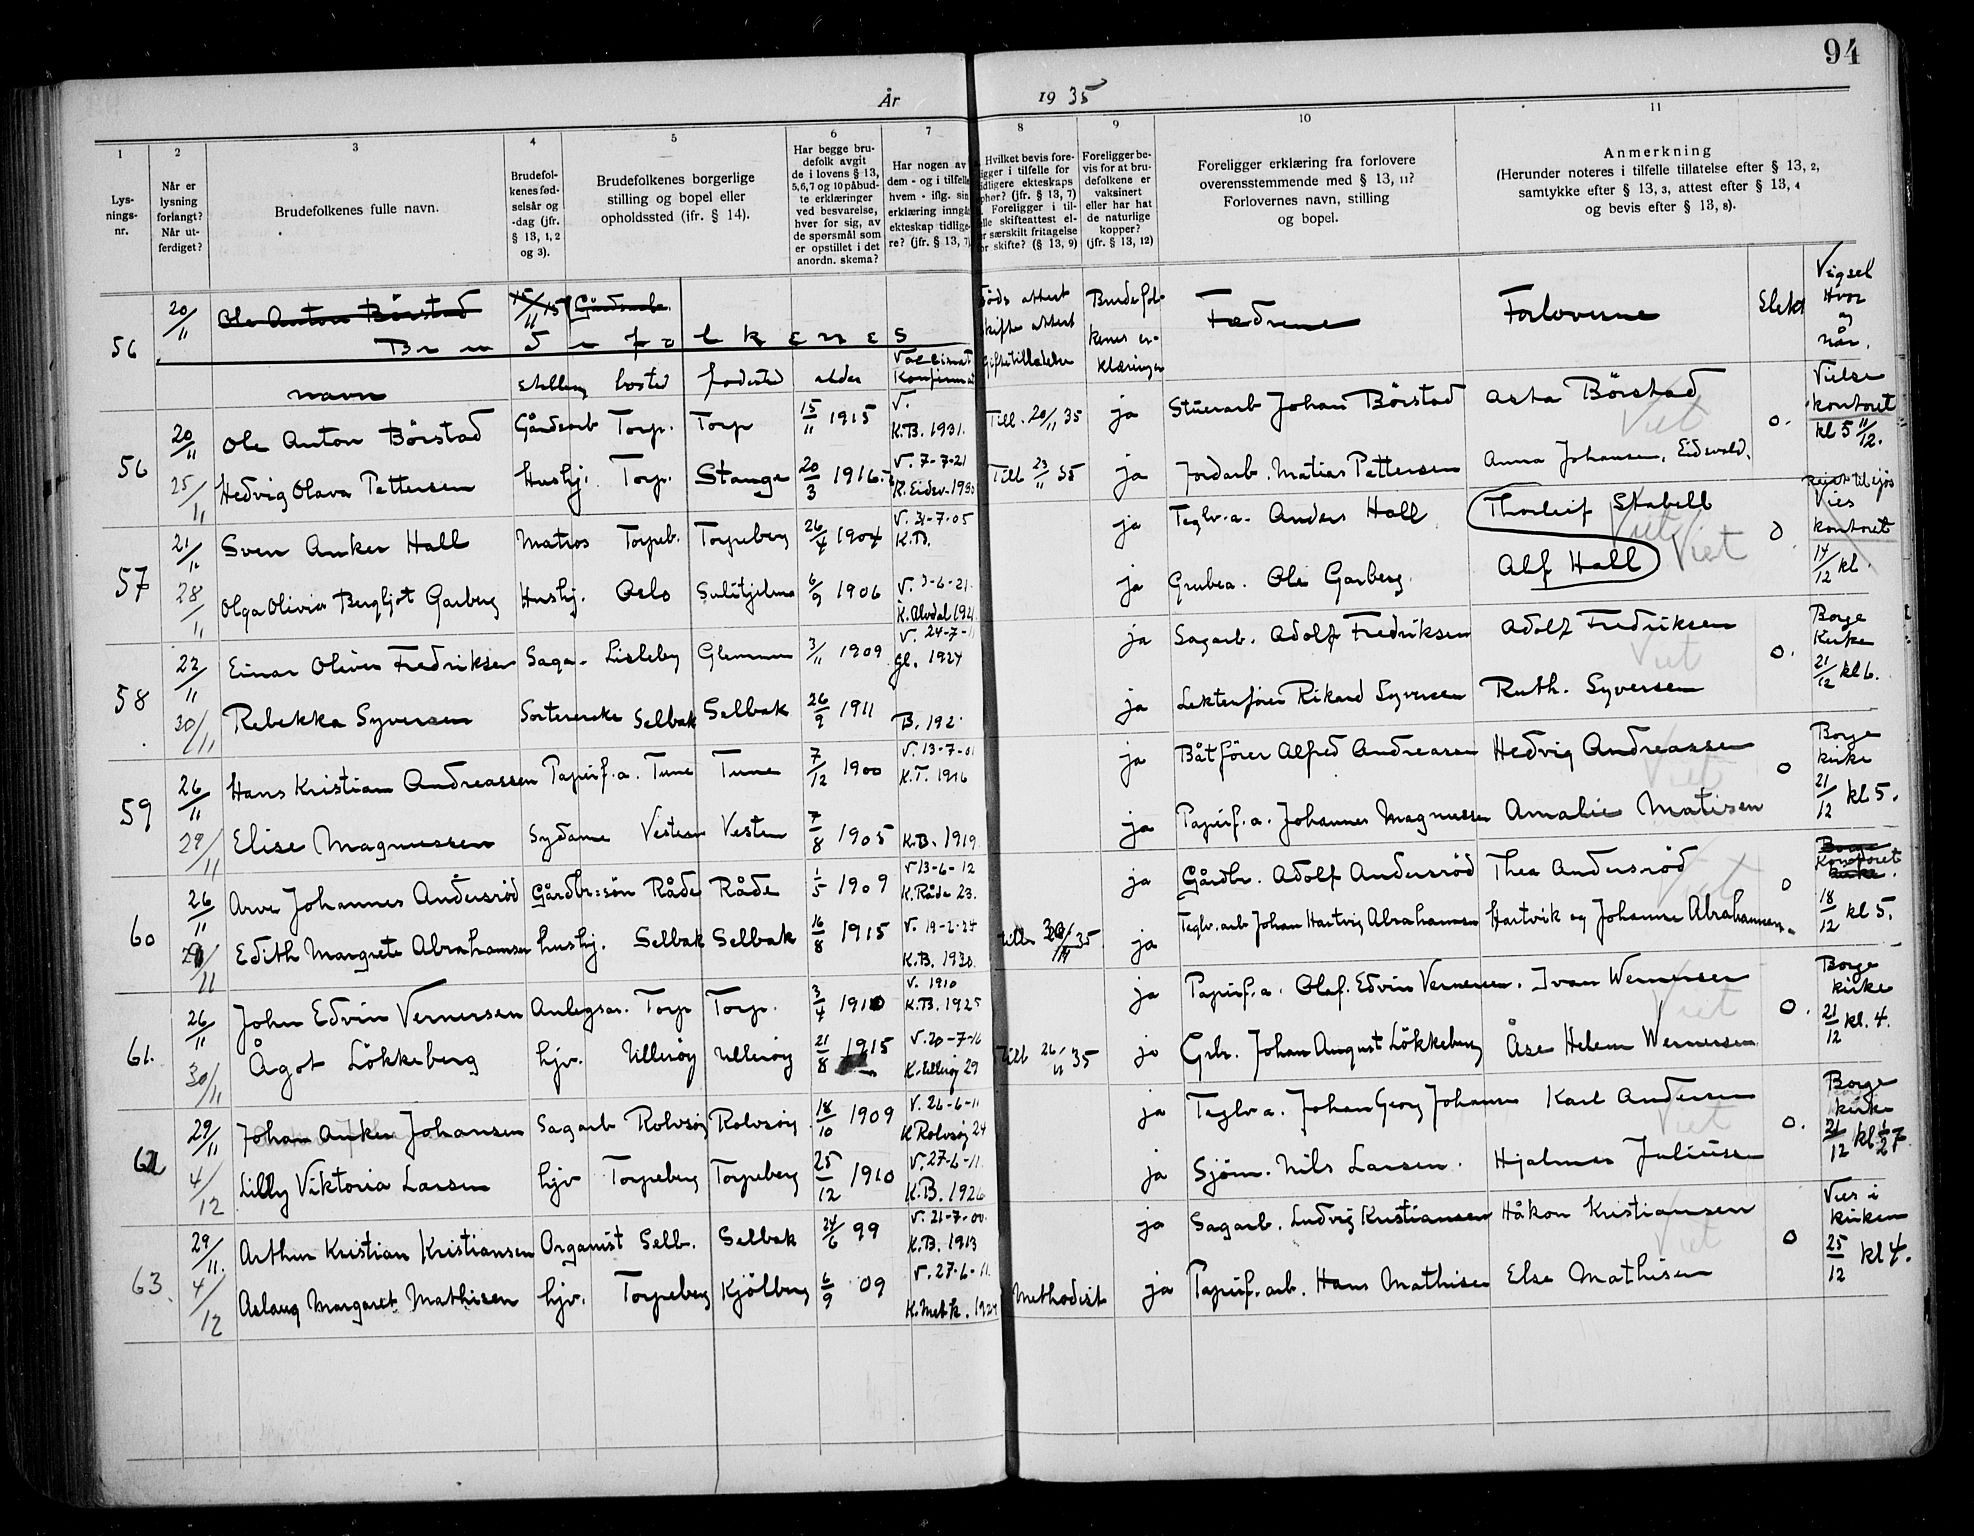 94
År 1935
1 2 3 4 5 6 7 8 9 10 11
Lys-
nings-
nr.
Når er
lysning
forlangt?
Når ut-
ferdiget?
Brudefolkenes fulle navn.
Brudefol-
kenes fød-
selsår og
-dag (jfr.
§ 13, 1, 2
og 3).
Brudefolkenes borgerlige
stilling og bopel eller
opholdssted (ifr. § 14).
Har begge bru-
defolk avgit
de i lovens § 13,
5,6,7 og 10 påbud-
te erklæringer
ved besvarelse,
hver for sig, av
de spørsmål som
er opstillet i det
anordn. skema?
Har nogen av
dem - og i tilfelle
hvem - iflg. sin
erklæring inngå
ekteskap tidlige-
re? (jfr. § 13, 7)
Hvilket bevis fore-
igger i tilfelle for
idligere ekteskaps
phør? (jfr. § 13, 7)
Foreligger i til-
elle skifteattest el-
er særskilt fritagelse
or skifte? (§ 13, 9)
Foreligger be-
vis for at bru-
defolkene er
vaksinert
eller har hat
de naturlige
kopper?
(jfr. § 13, 12)
Foreligger erklæring fra forlovere
overensstemmende med § 13, 11?
Forlovernes navn, stilling
og bopel.
Anmerkning
(Herunder noteres i tilfelle tillatelse efter § 13, 2,
samtykke efter § 13, 3, attest efter § 13, 4
og bevis efter § 13, 8).
56 20/11 Ole Anton Börstad 15/11 15 Gårdsarb. Föds attest Brudefol- Fedrene Forloverne Slekt Vigsel
Brudefolkenes skifte attest kenes er- Hvor
og
når.
navn stilling bosted fødested alder Vaccinat Konfirmat giftetillatelse klæringer
56 20/11 Ole Anton Börstad Gårdsarb Torp. Torp 15/11 1915 V. K.B. 1931. Till. 20/11 35 ja Stuerarb Johan Börstad Asta Börstad Viet o. Vielse kontoret kl 5 11/12.
25/11 Hedvig Olava Pettersen Hushj. Torp. Stange 20/3 1916. V. 7-7-21 K. Eidsv. 1930 Till 23/11 35 ja Jordarb. Matias Pettersen Anna Johansen, Eidsvold.
57 21/11 Sven Anker Hall Matros Torpeb. Torpeberg 26/4 1904 V. 31-7-05 K.B. ja Teglv.a. Anders Hall Thorleif Stabell Viet o til sjøs Vies kontoret 14/12 kl.
28/11 Olga Olivia Bergljot Garberg Hushj. Oslo Sulitjelma 6/9 1906 V. 3-6-21. K. Alvdal 1921 ja Grubea. Ole Garberg. Alf Hall Viet
58 22/11 Einar Oliver Fredriksen Saga. Lisleby Glemmen 3/11 1909 V. 24-7-11 Gl. 1924 ja Sagarb. Adolf Fredriksen Adolf Fredriksen Viet o. Borge Kirke 21/12 kl 6.
30/11 Rebekka Syversen Sortererske Selbak Selbak 26/9 1911 B. 192 ja Lekterfører Rikard Syversen Ruth. Syversen
59 26/11 Hans Kristian Andreassen Papirf.a. Tune Tune 7/12 1900 V. 13-7-01 K.T. 1916 ja Båtförer Alfred Andreasen Hedvig Andreassen Viet o Borge kirke 21/12 kl 5.
29/11 Elise Magnussen Sydame Vesten Vesten 7/8 1905 K.B. 1919 ja Papirf.a. Johannes Magnussen Amalie Matisen
60 26/11 Arve Johannes Andersröd Gårdbr:sön Råde Råde 1/5 1909 V 13-6-12 K. Råde 23. ja Gårdbr. Adolf Andersröd Thea Andersröd Viet o Borge Kontoret kirke. 18/12 kl 5.
29/11 Edith Margrete Abrahamsen hushj. Selbak Selbak 16/8 1915 V. 19-2-24 K.B. 1930. till 35 ja Teglv.arb Johan Hartvig Abrahamsen Hartvik og Johanne Abrahamsen.
61. 26/11 John Edvin Vernersen Anlegsar. Torp Torp. 3/4 1910 V. 1910 K.B. 1925 ja Papirf.a. Olaf. Edvin Vernersen. Ivan Wernersen Viet o. Borge kirke 21/12 kl. 4.
30/11 Ågot Lökkeberg hjv. Ullerøy Ullerøy 21/8 1915 V. 20-7-16 K. Ullerøy 29 Till 26/11 35 ja Grbr. Johan August Lökkeberg Åse Helene Wernersen
62 29/11 Johan Anker Johansen Sagarb Rolvsøy Rolvsøy 18/10 1909 V. 26-6-11 K Rolvsøy 24 ja Teglv a. Johan Georg Johansen Karl Andersen Viet o. Borge kirke 21/12 kl 1/2 7.
4/12 Lilly Viktoria Larsen hjv Torpeberg Torpeberg 25/12 1910 V. 27-6-11. K.B. 1926 ja Sjöm. Nils Larsen. Hjalmar Juliusen
63. 29/11. Arthur Kristian Kristiansen Organist Selb. Selbak 24/6 99 V. 21-7-00. K.B. 1913 ja Sagarb. Ludvig Kristiansen Håkon Kristiansen Viet o Vies i kirken 25/12 kl 4.
4/12 Aslaug Margaret Mathisen hjv. Torpeberg Kjölberg 6/9 09 V. 27-6-11. K. Met.k. 1924 Methodist ja Papirf. arb. Hans Mathisen Else Mathisen